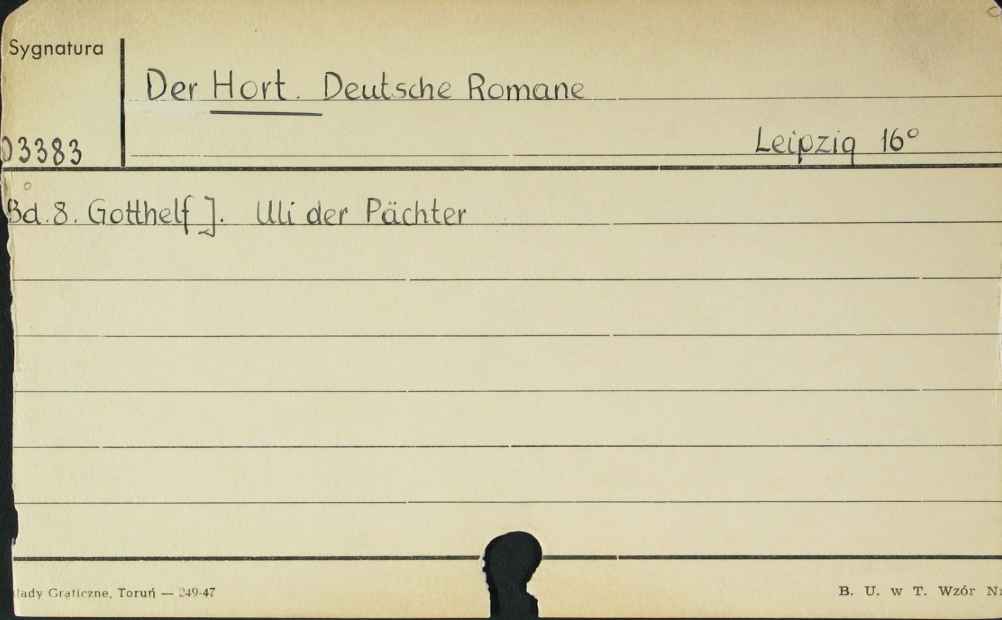 Sygnatura
Der Hort. Deutsche Romane
03383
Leipzig 16°
Bd. 8. Gotthelf J. Uli der Pächter
łady Graficzne, Toruń — 249-47
B. U. w T. Wzór Nr